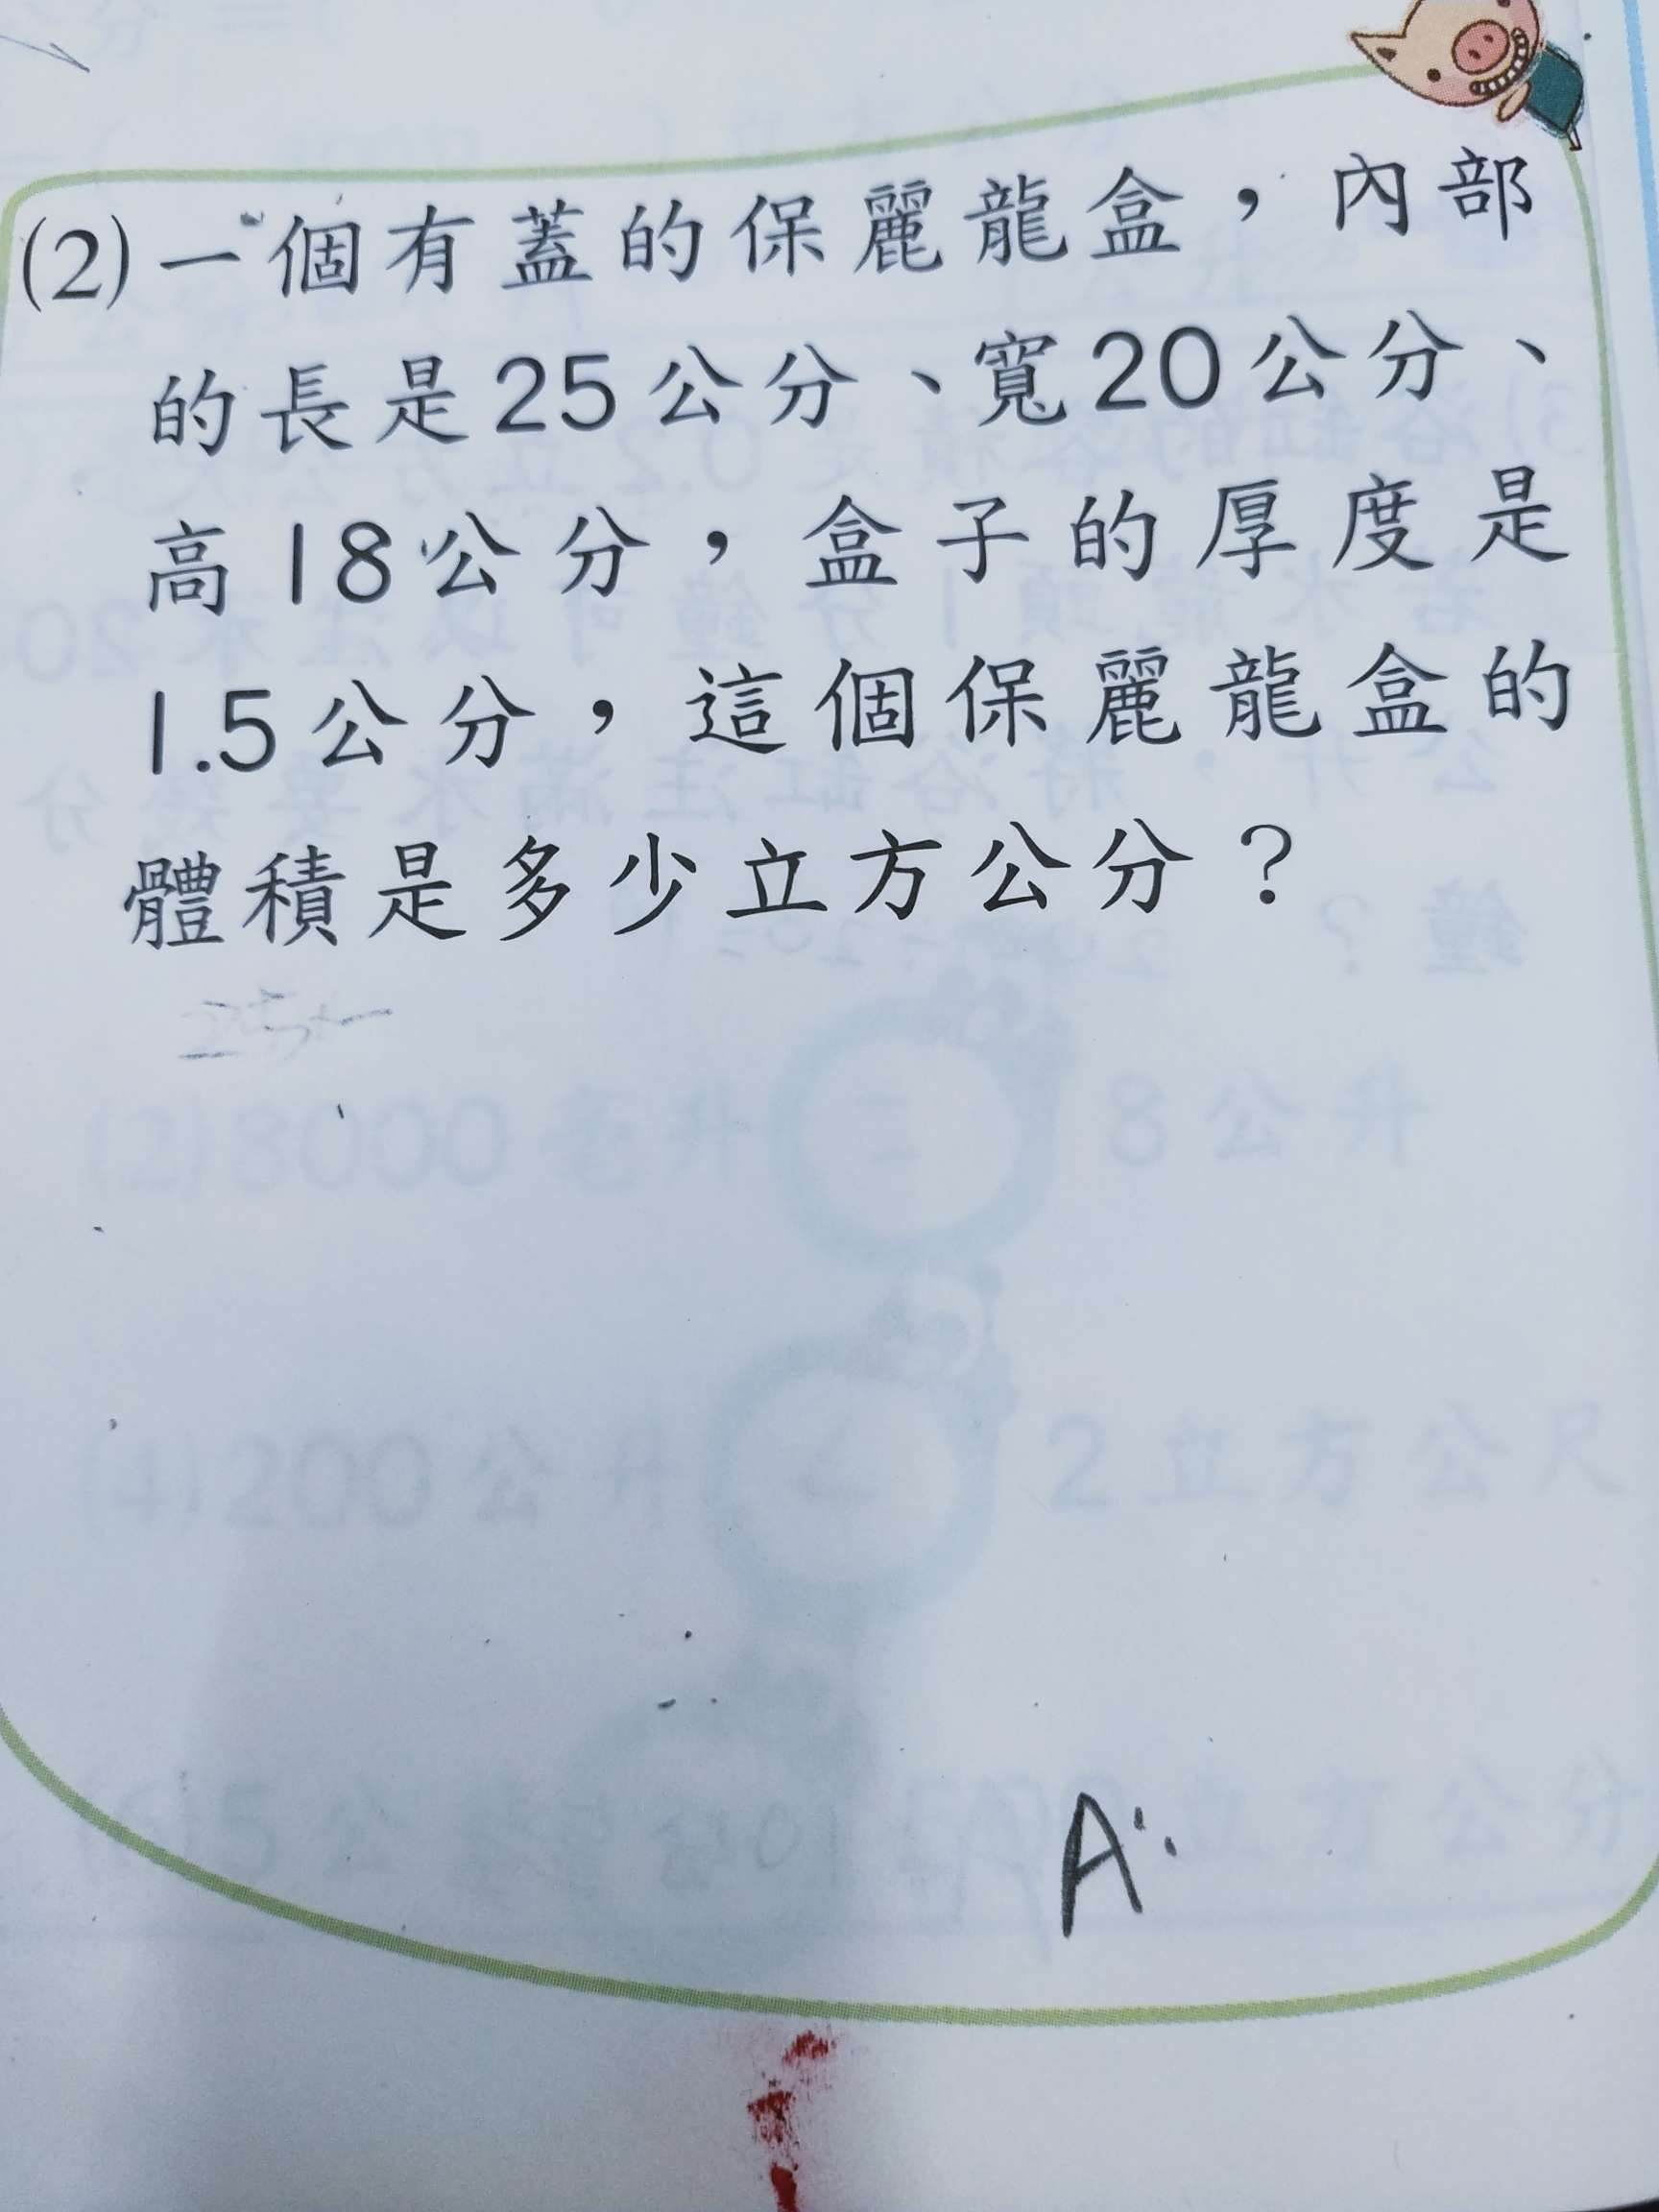 (2)一個有蓋的保麗龍盒，內部
的長是25公分、寬20公分、
高18公分，盒子的厚度是
1.5公分，這個保麗龍盒的
體積是多少立方公分？
A: